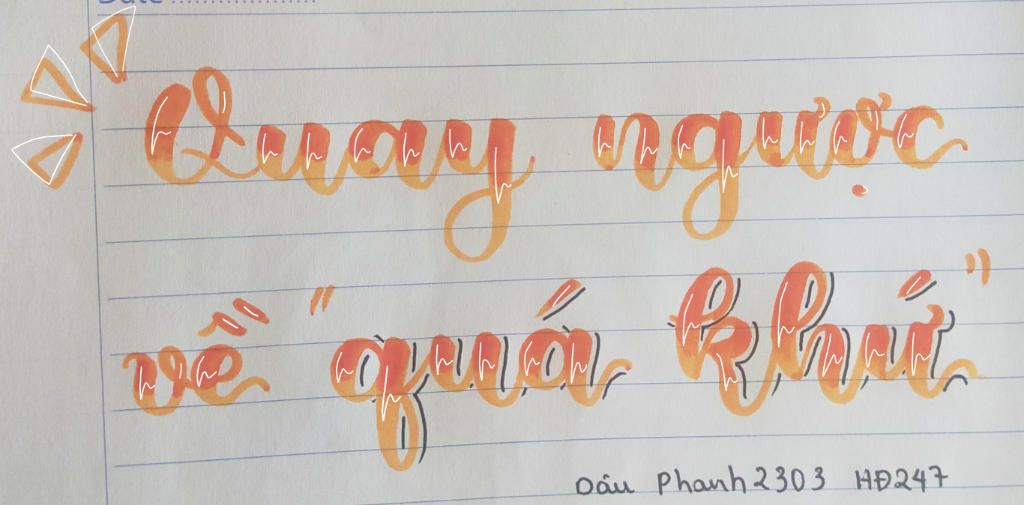 Date ....................
Quay ngược
về "quá khứ"
Dâu Phanh2303 HĐ247